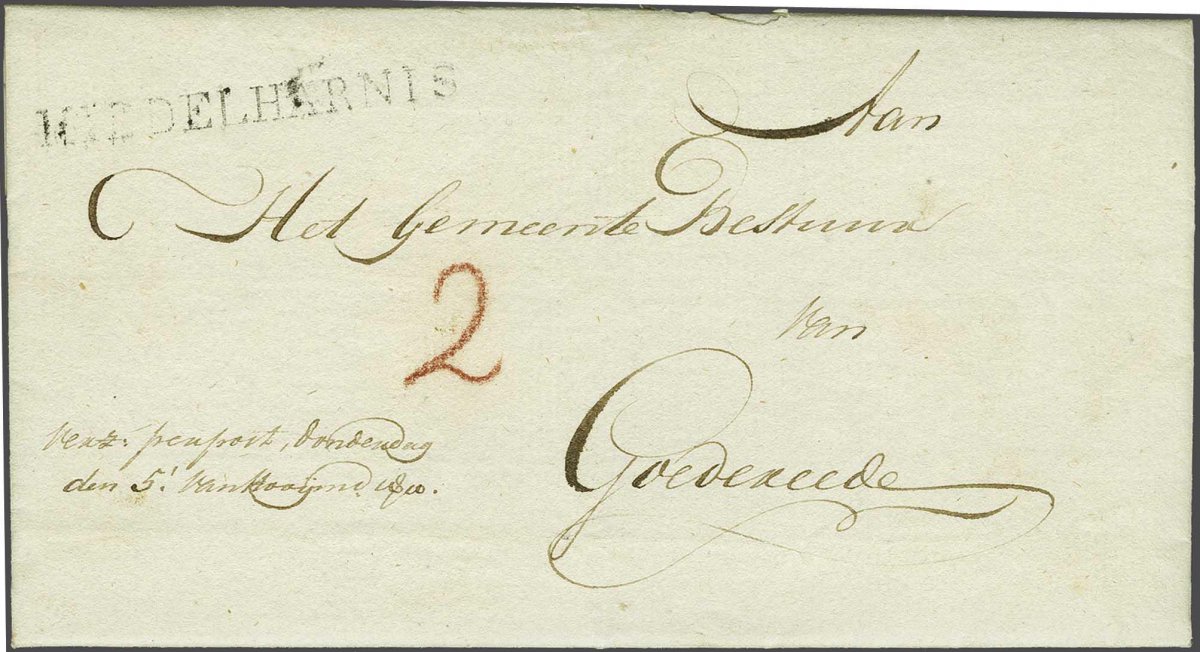 MIDDELHARNIS
Aan
Het Gemeente Bestuur
2
van
Goedereede
Verz: per post, donderdag
den 5: van Hooijmd